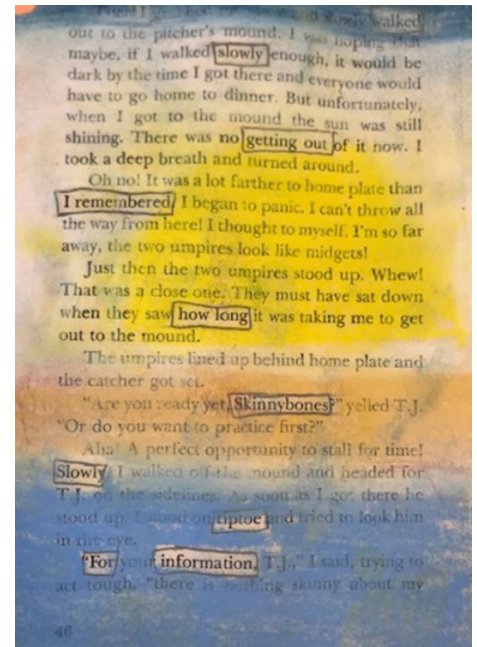 walked
out to the pitcher's mound. I was hoping that
maybe, if I walked slowly enough, it would be
dark by the time I got there and everyone would
have to go home to dinner. But unfortunately,
when I got to the mound the sun was still
shining. There was no getting out of it now. I
took a deep breath and turned around.
Oh no! It was a lot farther to home plate than
I remembered. I began to panic. I can't throw all
the way from here! I thought to myself. I'm so far
away, the two umpires look like midgets!
Just then the two umpires stood up. Whew!
That was a close one. They must have sat down
when they saw how long it was taking me to get
out to the mound.
The umpires lined up behind home plate and
the catcher got set.
"Are you ready yet, Skinnybones?" yelled T.J.
"Or do you want to practice first?"
Aha! A perfect opportunity to stall for time!
Slowly I walked off the mound and headed for
T.J. on the sidelines. As soon as I got there he
stood up. I stood on tiptoe and tried to look him
in the eye.
"For your information, T.J.," I said, trying to
act tough, "there is nothing skinny about my
46